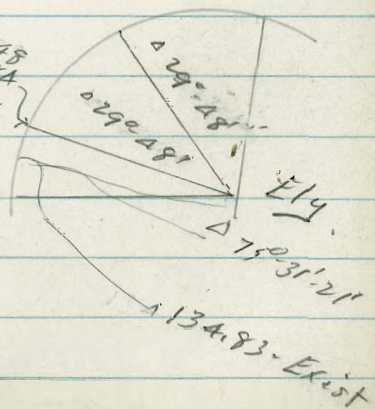 48
Δ 29°-48'
Δ 29°-48'
Ely.
Δ 75°-31'-21"
134.83 - Exist